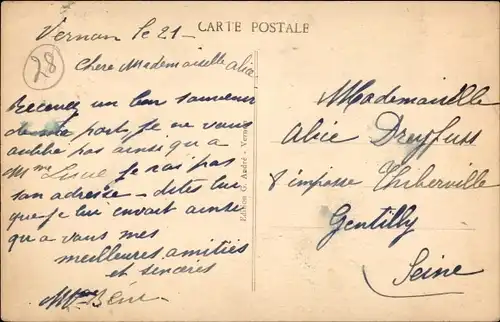 CARTE POSTALE
Vernon le 21-
28
Chere Mademoiselle alice
Recevez un bon souvenir
de ma part je ne vous
oublie pas ainsi que a
Mme je n'ai pas
son adresse - dites lui
que je lui envoit ainsi
qu a vous mes
meilleures amitiés
et sincères
Mme
Edition G. André - Vernon
Mademoiselle
Alice Dreyfuss
8 impasse Thiberville
Gentilly
Seine